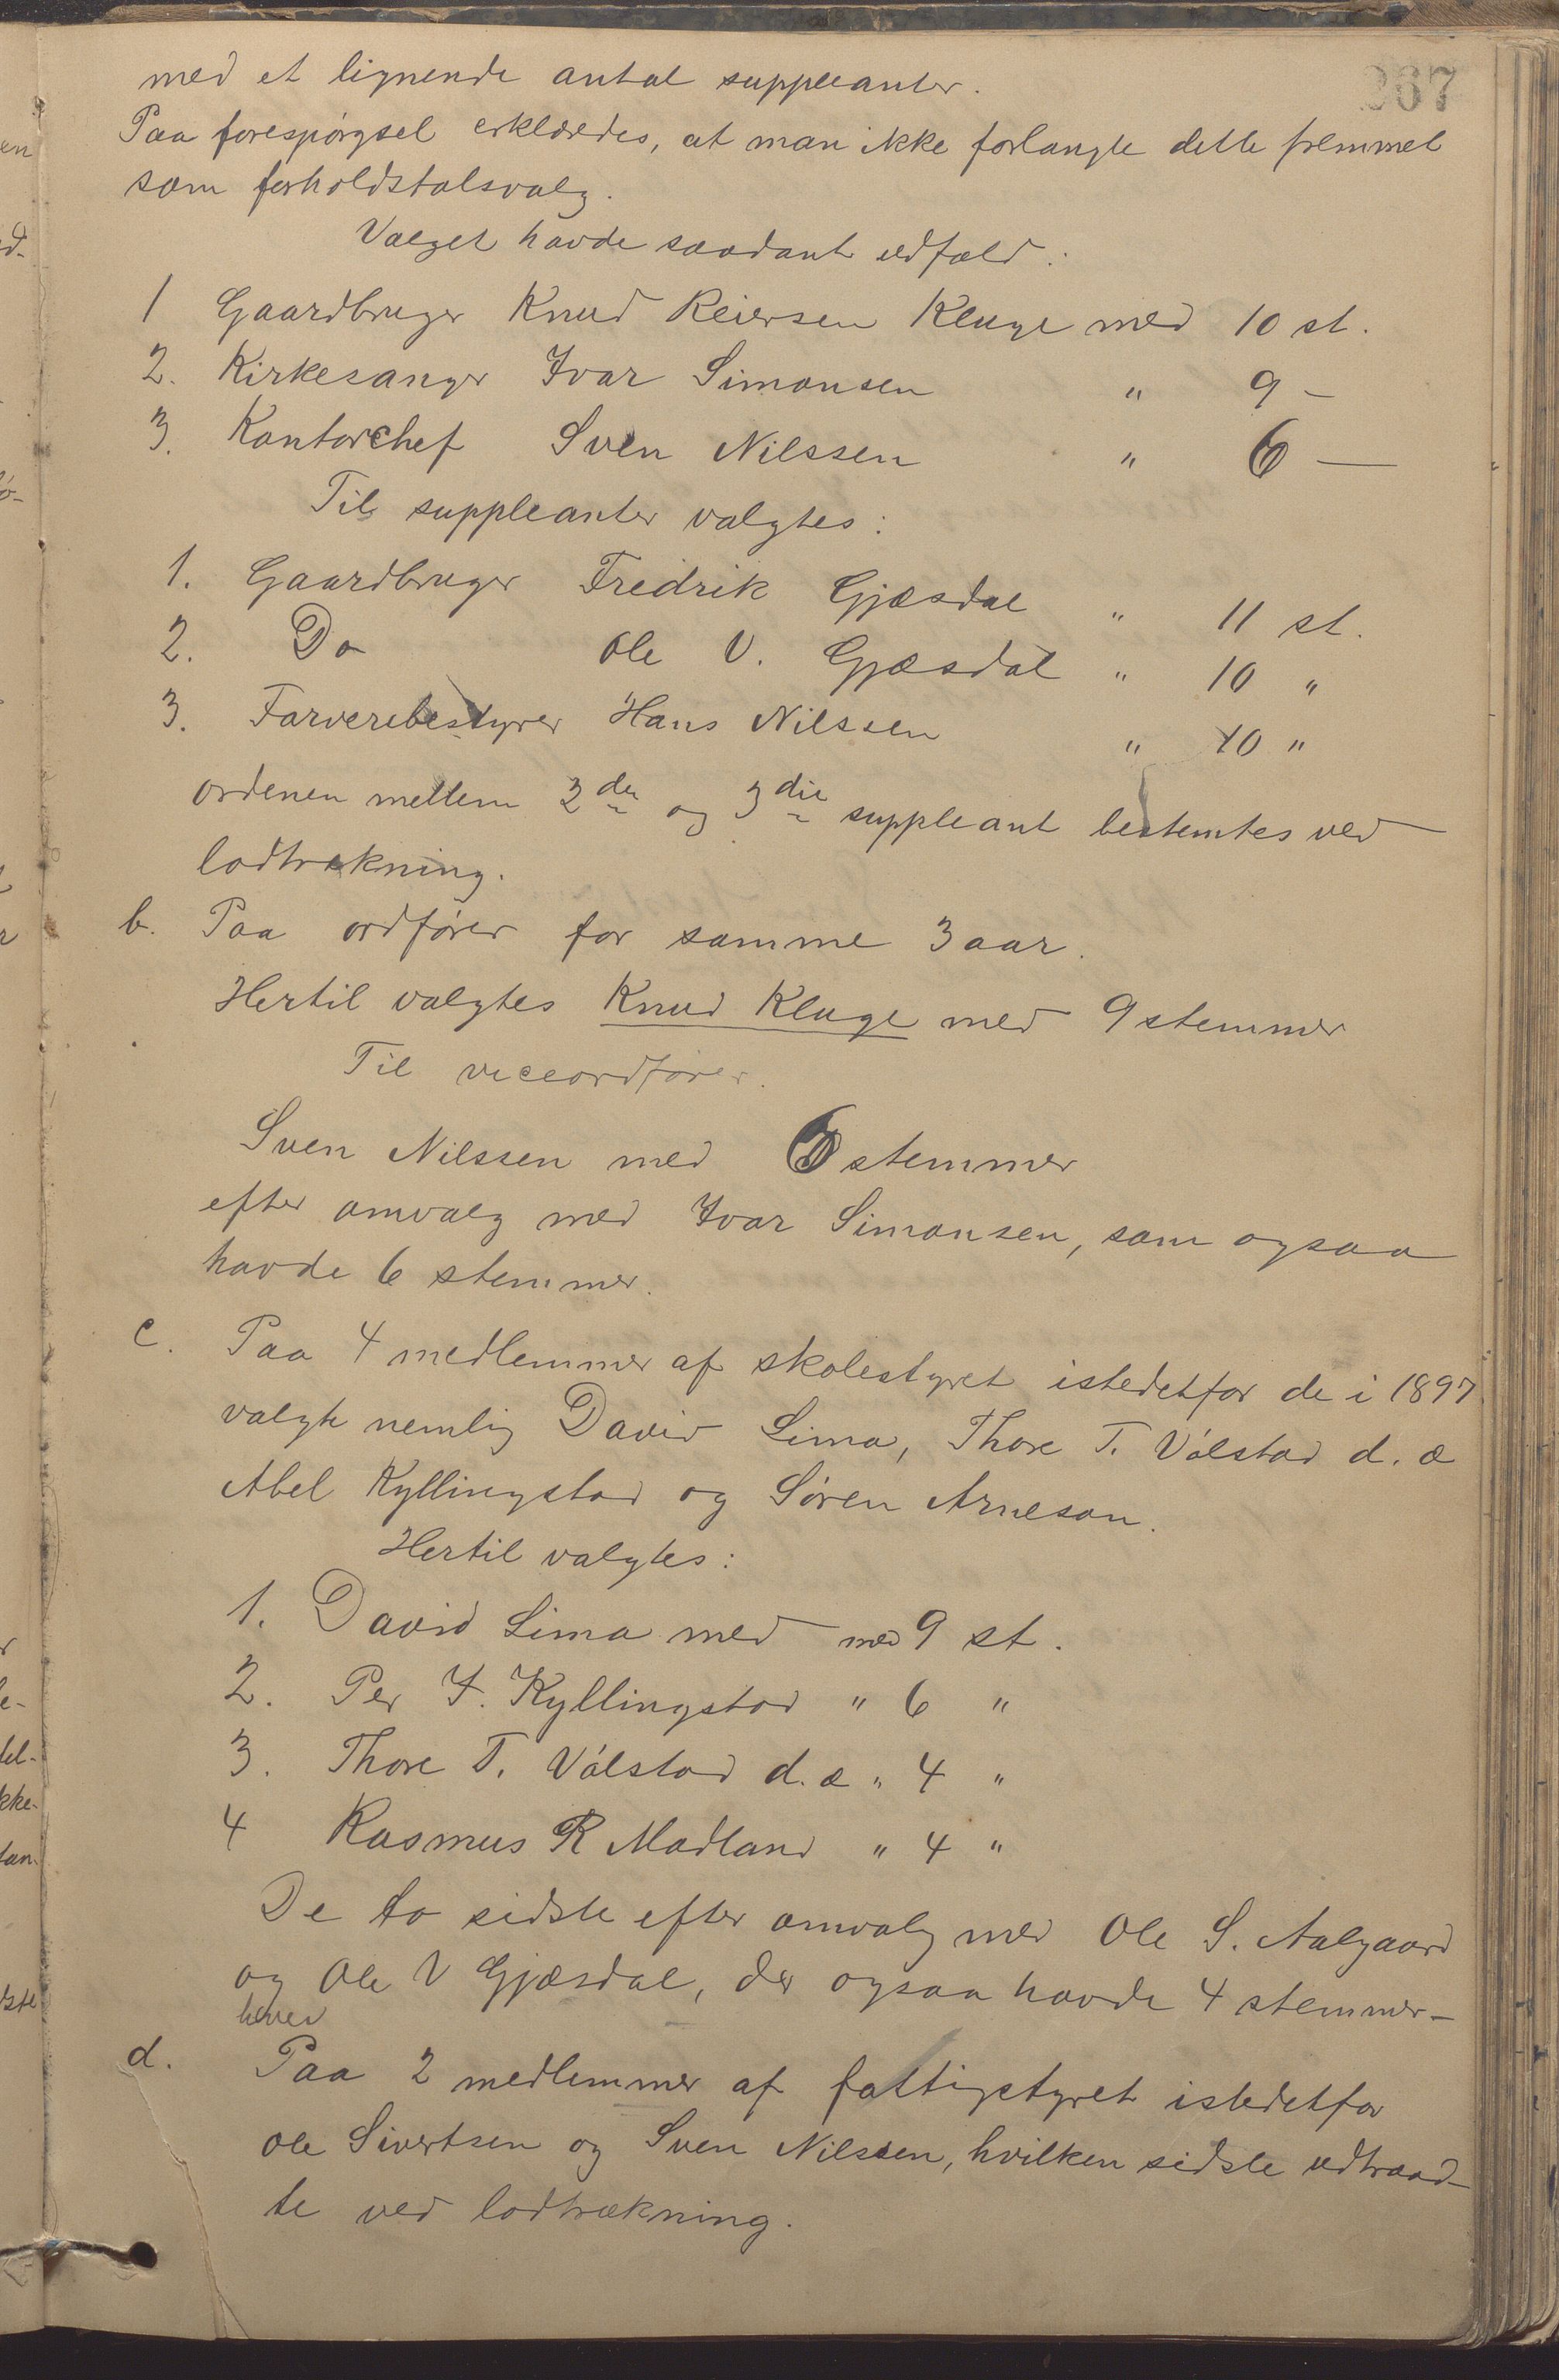 267
med et lignende antal suppleanter.
Paa forespørgsel erklæredes, at man ikke forlangte dette fremmet
som forholdstalsvalg.
Valget havde saadant udfald:
1 Gaardbruger Knud Reiersen Kluge med 10 st.
2. Kirkesanger Ivar Simonsen " 9 -
3. Kontorchef Sven Nilssen " 6 -
Til suppleanter valgtes:
1. Gaardbruger Fredrik Gjæsdal " 11 st.
2. Do Ole V. Gjæsdal " 10 "
3. Farveribestyrer Hans Nilssen " 10 "
ordenen mellem 2den og 3die suppleant bestemtes ved
lodtrækning.
b. Paa ordfører for samme 3 aar.
Hertil valgtes Knud Kluge med 9 stemmer
Til viceordfører.
Sven Nilssen med 6 stemmer
efter omvalg med Ivar Simonsen, som ogsaa
havde 6 stemmer.
c. Paa 4 medlemmer af skolestyret istedetfor de i 1897
valgte nemlig David Lima, Thore T. Vølstad d. æ
Abel Kyllingstad og Søren Arneson.
Hertil valgtes:
1. David Lima med med 9 st.
2. Per F. Kyllingstad " 6 "
3. Thore T. Vølstad d. æ " 4 "
4 Rasmus R Madland " 4 "
De to sidste efter omvalg med Ole S. Aalgaard
og Ole V Gjæsdal, der ogsaa havde 4 stemmer-
hver
d. Paa 2 medlemmer af fattigstyret istedetfor
Ole Sivertsen og Sven Nilssen, hvilken sidste udtraad-
te ved lodtrækning.